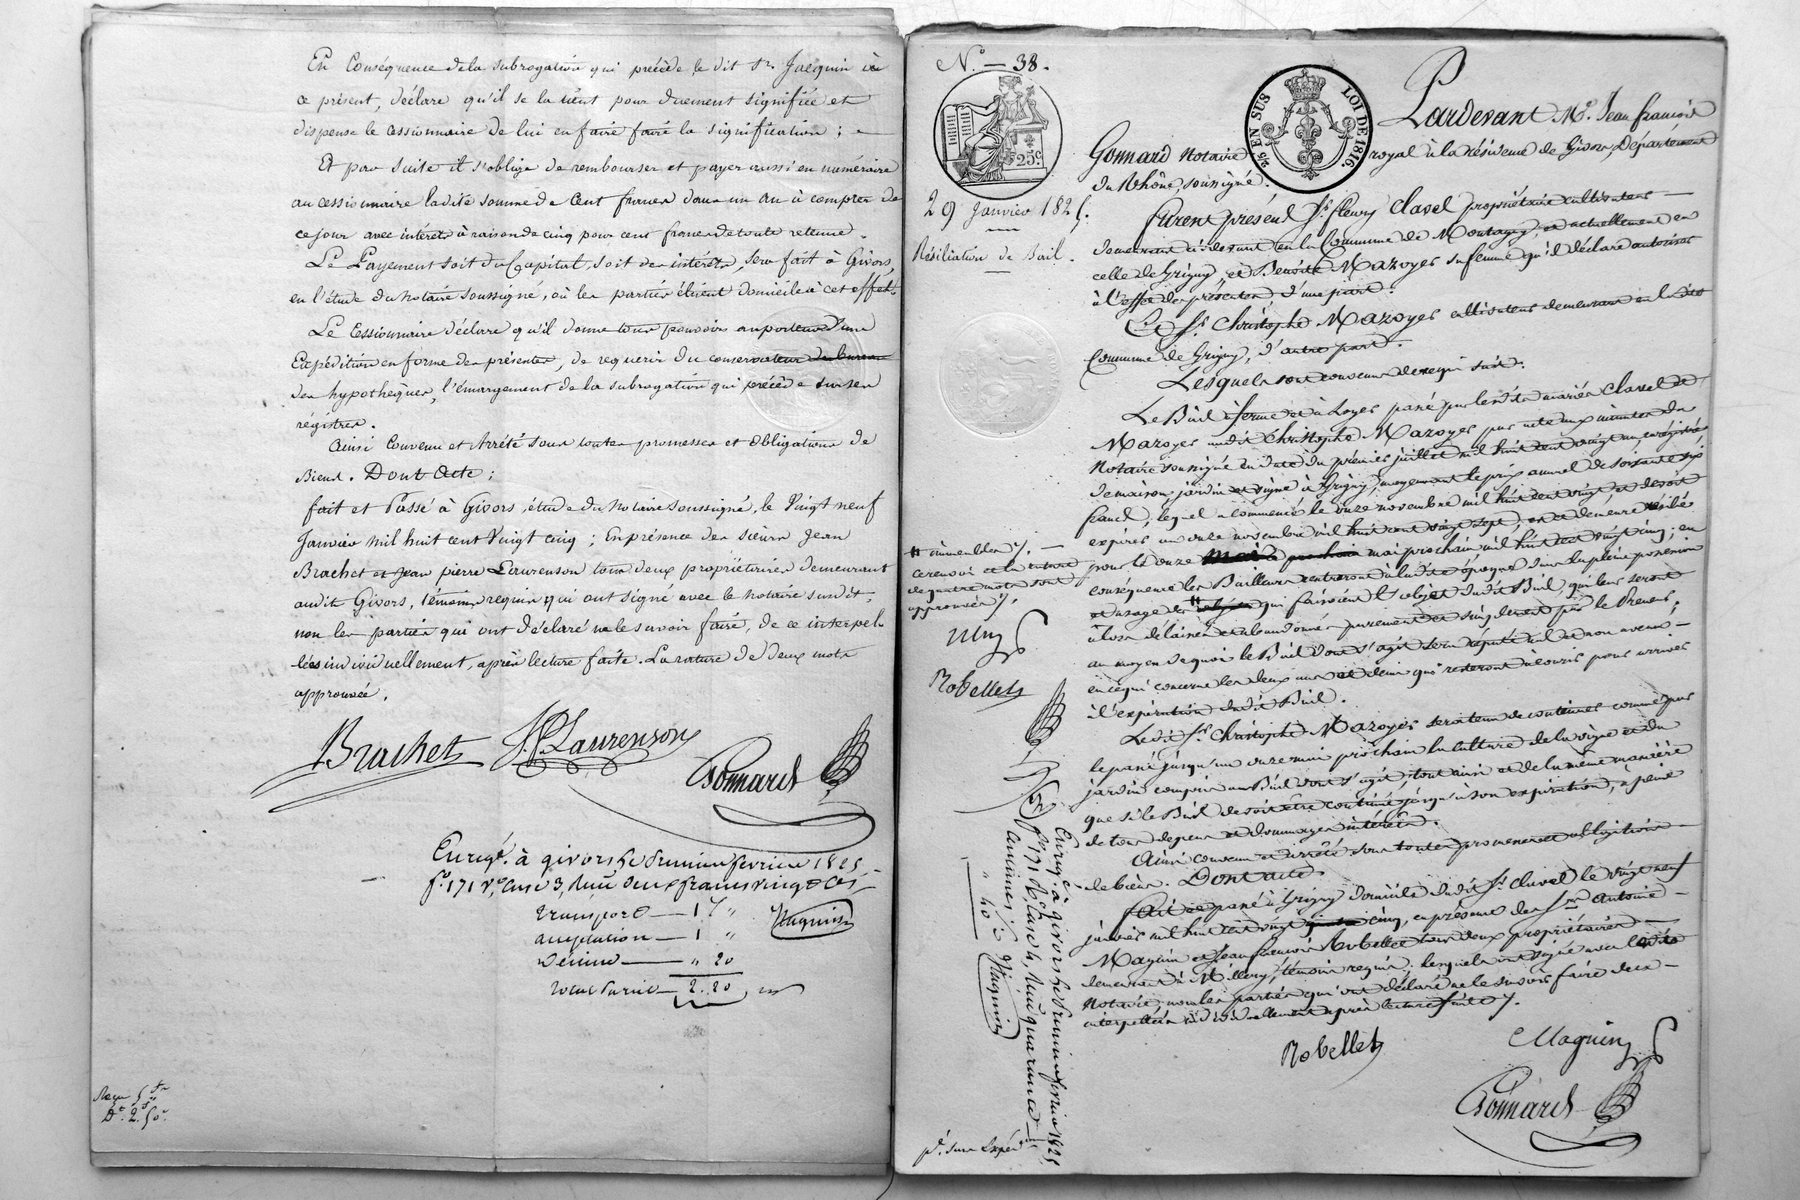 En Conséquence de la subrogation qui précède le dit Sr. Jacquin ici
ce présent, déclare qu'il se la tient pour duement signifiée et
dispense le cessionnaire de lui en faire faire la signification ;
Et par suite il s'oblige de rembourser et payer aussi en numéraire
au cessionnaire ladite somme de Cent francs dans un an à compter de
ce jour avec intérêts à raison de cinq pour cent franc de toute retenue.
Le Payement soit du Capital, soit des intérêts, sera fait à Givors,
en l'étude du notaire soussigné, où les parties élisent domicile à cet effet.
Le Cessionnaire déclare qu'il donne tous pouvoirs au porteur d'une
Expédition en forme des présentes, de requérir du conservateur du bureau
des hypothèques, l'émargement de la subrogation qui précède sur ses
régistres.
Ainsi Convenu et Arrêté sous toutes promesses et Obligations de
Biens. Dont Acte ;
fait et Passé à Givors, étude du notaire soussigné, le Vingt neuf
Janvier mil huit cent Vingt cinq ; En présence des sieurs Jean
Brachet et Jean pierre Laurenson tous deux propriétaires demeurant
audit Givors, témoins requis qui ont signé avec le notaire susdit,
non les parties qui ont déclaré ne le savoir faire, de ce interpel-
lées individuellement, après lecture faite. La rature de deux mots
approuvée.
Brachet JP Laurenson
Gonnard
Enregé. à givors le premier fevrier 1825
fo. 171 Vo. case 3, Reçu deux francs vingt ces.
transport — 1 "
acceptation — 1 "
Décime — " 20
2.20
Jacquin
Reçu 5 fr
Dt. 2.50c.
N.o — 38.
25c.
25 EN SUS LOI DE 1816.
29 Janvier 1825.
Résiliation de Bail.
Pardevant Me. Jean françois
Gonnard Notaire royal à la résidence de Givors, Département
du Rhône, soussigné.
furent présens Sr. fleury Clavel propriétaire cultivateur
demeurant ci-devant en la Commune de Montagny, et actuellement en
celle de Grigny, et Benoite Mazoyer sa femme qu'il déclare autoriser
à l'effet des présentes, d'une part.
Et Sr. Christophe Mazoyer cultivateur demeurant en la dite
Commune de Grigny, d'autre part.
Lesquels sont convenus de ce qui suit.
Le Bail à ferme et à Loyer passé par les dits mariés Clavel et
Mazoyer audit Christophe Mazoyer par acte aux minutes du
Notaire soussigné en date du premier juillet mil huit cent vingt un, enregistré,
de maison, jardin et vigne à Grigny, moyennant le prix annuel de soixante six
francs, lequel a commencé le onze novembre mil huit cent vingt, et devoit
expirer au onze novembre mil huit cent vingt sept, est et demeure résilié
pour le onze mai prochain mil huit cent vingt cinq ; en
conséquence les Bailleurs rentreront à ladite époque dans la pleine possession
et usage des qui faisoient l'objet dudit Bail, qui leur seront
à lors délaissés et abandonnés purement et simplement par le Preneur,
au moyen de quoi le Bail dont s'agit sera réputé nul et non avenu
en ce qui concerne les deux ans et demi qui resteront à courir pour arriver
à l'expiration dudit Bail.
Ledit Sr. Christophe Mazoyer sera tenu de continuer comme par
le passé jusqu'au onze mai prochain la culture de la vigne et du
jardin compris au Bail dont s'agit, tout ainsi et de la même manière
que si le Bail devoit être continué jusqu'à son expiration, à peine
de tous dépens et dommages intérêts.
Ainsi convenu et arrêté sous toutes promesses et obligations
de biens. Dont acte.
fait et passé à Grigny domicile dudit Sr. Clavel le vingt neuf
janvier mil huit cent vingt cinq, en présence des Srs. Antoine
Maguin et Jean françois Robellet tous deux propriétaires
demeurant à Millery, témoins requis, lesquels ont signé avec le dit
Notaire, non les parties qui ont déclaré ne le savoir faire de ce
interpellées individuellement après lecture faite.
immeubles.
ce renvoi et la rature
de quatre mots sont
approuvés.
Robellet
Enregé. à Givors le premier fevrier 1825
fo. 171 Vo. case 4, Reçu quarante
centimes
" 40
Jacquin
Robellet Maguin
Gonnard